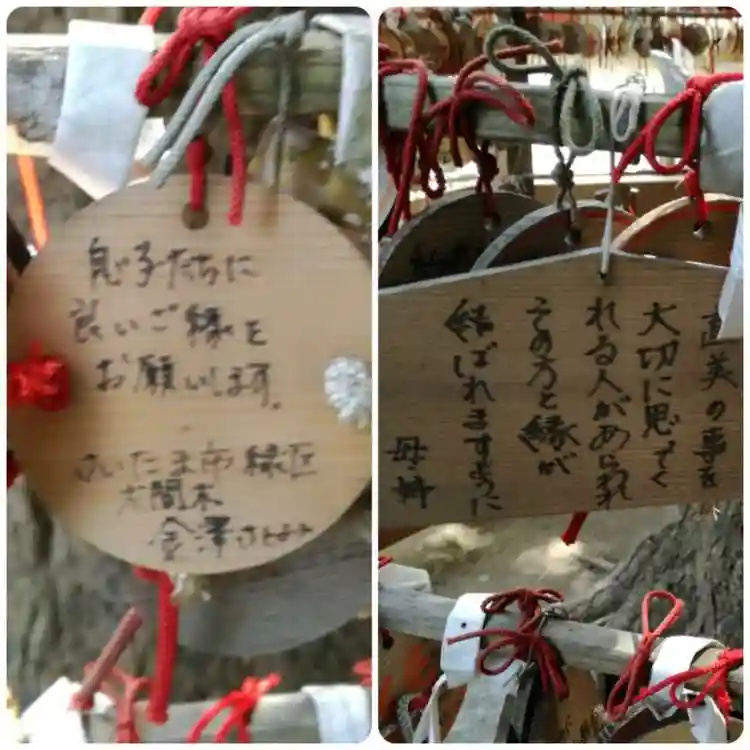 息子たちに
良いご縁を
お願いします。
さいたま市緑区
大間木
金澤さとみ
直美の事を
大切に思ってく
れる人があらわれ
その方と縁が
結ばれますように
母